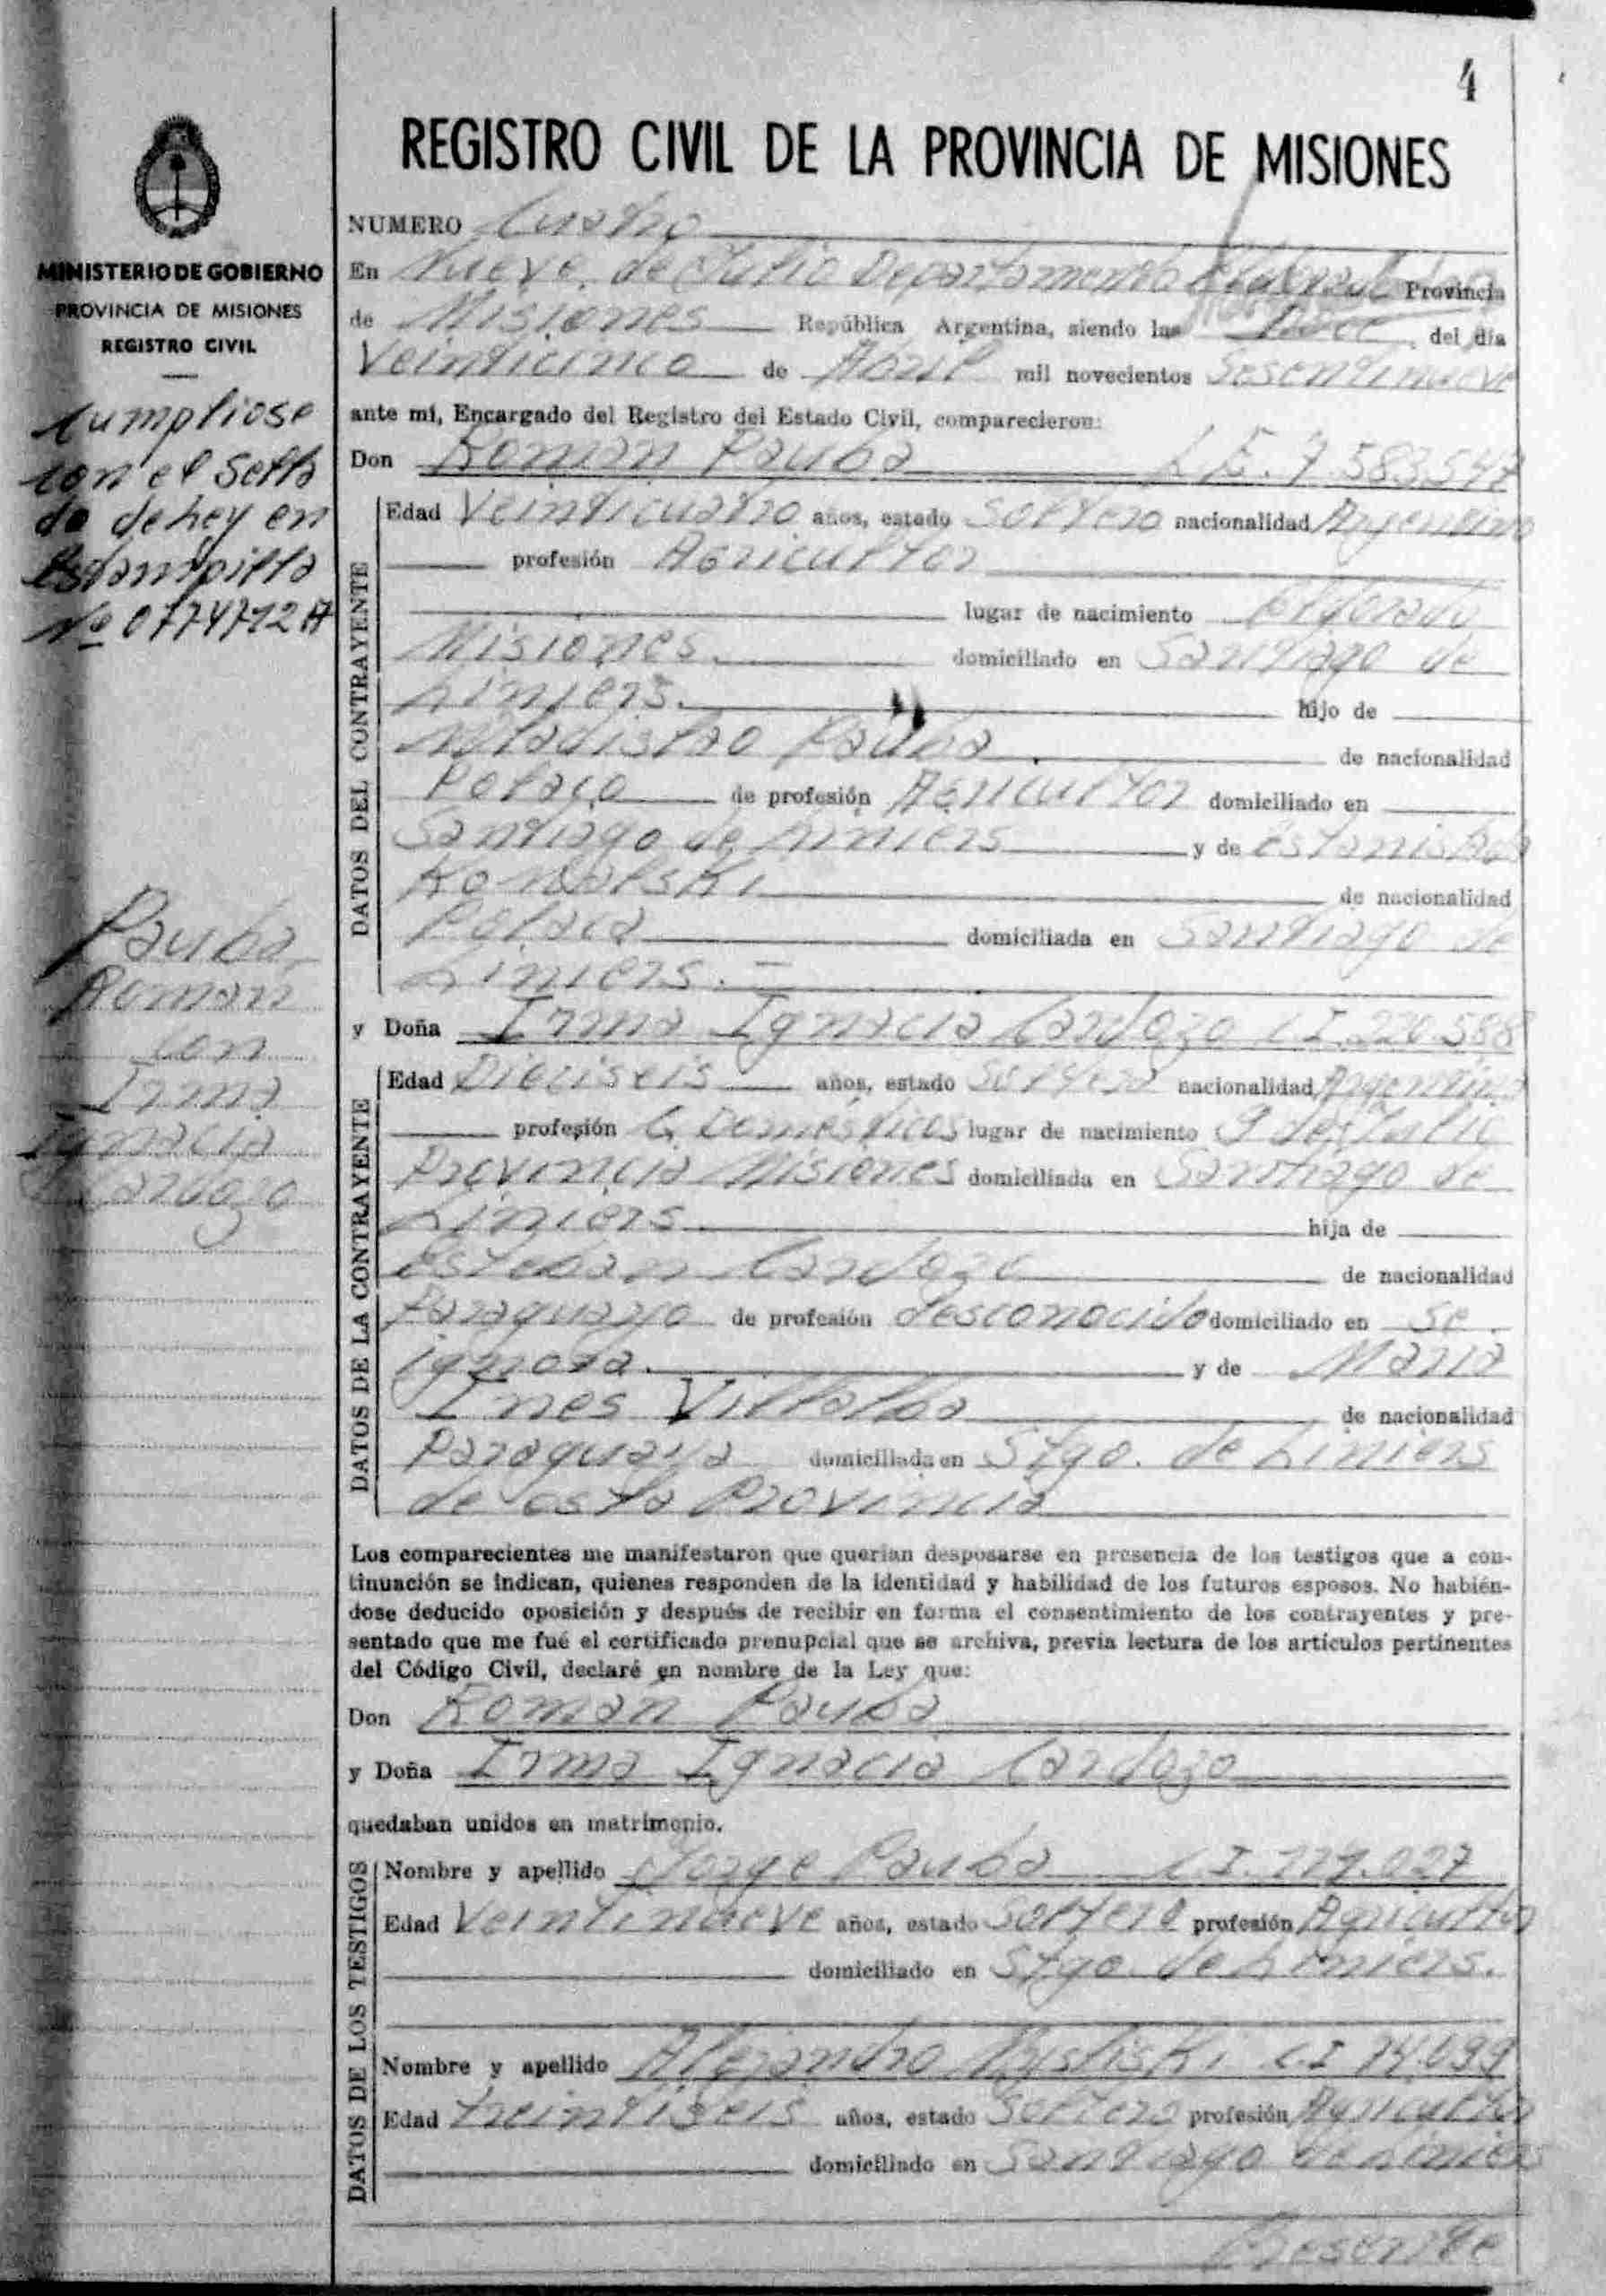 4
REGISTRO CIVIL DE LA PROVINCIA DE MISIONES
MINISTERIO DE GOBIERNO
PROVINCIA DE MISIONES
REGISTRO CIVIL
Cumpliose
con el Sella
do de Ley en
Estampilla
Nº 0774712 A
Pauba
Roman
con
Irma
Ignacia
Cardozo
NUMERO Cuatro
En Nueve de Julio Departamento Eldorado Provincia
de Misiones República Argentina, siendo las Doce del día
Veinticinco de Abril mil novecientos Sesentinueve
ante mí, Encargado del Registro del Estado Civil, comparecieron:
Don Roman Pauba L.E. 7.583.547
DATOS DEL CONTRAYENTE
Edad Veinticuatro años, estado Soltero nacionalidad Argentino
profesión Agricultor
lugar de nacimiento Eldorado
Misiones. domiciliado en Santiago de
Liniers. hijo de
Wladislao Pauba de nacionalidad
Polaco de profesión Agricultor domiciliado en
Santiago de Liniers y de Estanislada
Kowalski de nacionalidad
Polaca domiciliada en Santiago de
Liniers. =
y Doña Irma Ignacia Cardozo C.I. 226.588
DATOS DE LA CONTRAYENTE
Edad Dieciseis años, estado Soltera nacionalidad Argentina
profesión Q. Domésticos lugar de nacimiento 9 de Julio
Provincia Misiones domiciliada en Santiago de
Liniers hija de
Esteban Cardozo de nacionalidad
Paraguayo de profesión desconocido domiciliado en Se
ignora. y de Maria
Ines Villalba de nacionalidad
Paraguaya domiciliada en Stgo. de Liniers
de esta Provincia
Los comparecientes me manifestaron que querían desposarse en presencia de los testigos que a con-
tinuación se indican, quienes responden de la identidad y habilidad de los futuros esposos. No habién-
dose deducido oposición y después de recibir en forma el consentimiento de los contrayentes y pre-
sentado que me fué el certificado prenupcial que se archiva, previa lectura de los artículos pertinentes
del Código Civil, declaré en nombre de la Ley que:
Don Roman Pauba
y Doña Irma Ignacia Cardozo
quedaban unidos en matrimonio.
DATOS DE LOS TESTIGOS
Nombre y apellido Jorge Pauba C.I. 117.027
Edad Veintinueve años, estado Soltero profesión Agricultor
domiciliado en Stgo. de Liniers.
Nombre y apellido Alejandro C.I 74.699
Edad treintiseis años, estado Soltero profesión Agricultor
domiciliado en Santiago de Liniers
Presente